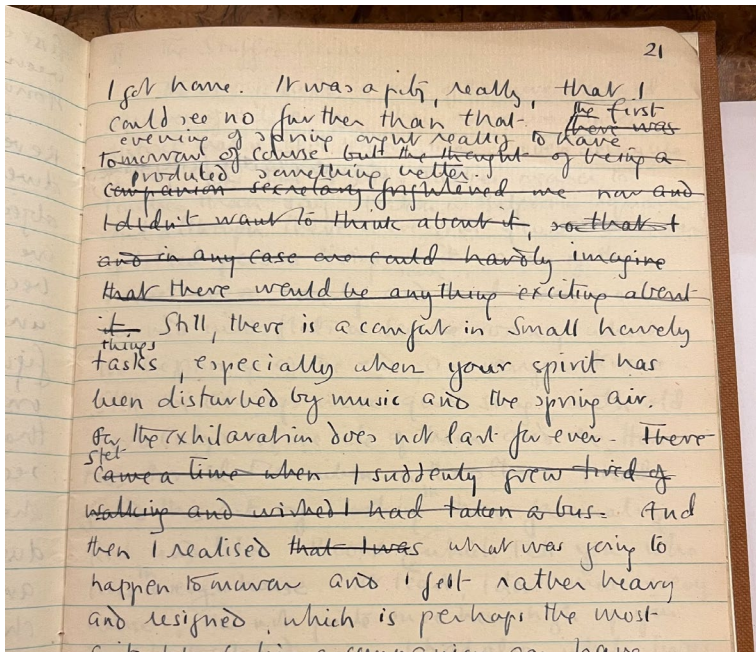 21
I got home. It was a pity, really, that I
could see no further than that. The first
there was
evening of spring ought really to have
tomorrow of course but the thought of being a
produced something better.
companion secretary frightened me now and
I didn't want to think about it, so that I
and in any case one could hardly imagine
that there would be anything exciting about
it. Still, there is a comfort in small homely
things
tasks, especially when your spirit has
been disturbed by music and the spring air.
For the exhilaration does not last for ever. There
stet
came a time when I suddenly grew tired of
walking and wished I had taken a bus. And
then I realised that I was what was going to
happen tomorrow and I felt rather heavy
and resigned, which is perhaps the most
a companion or have